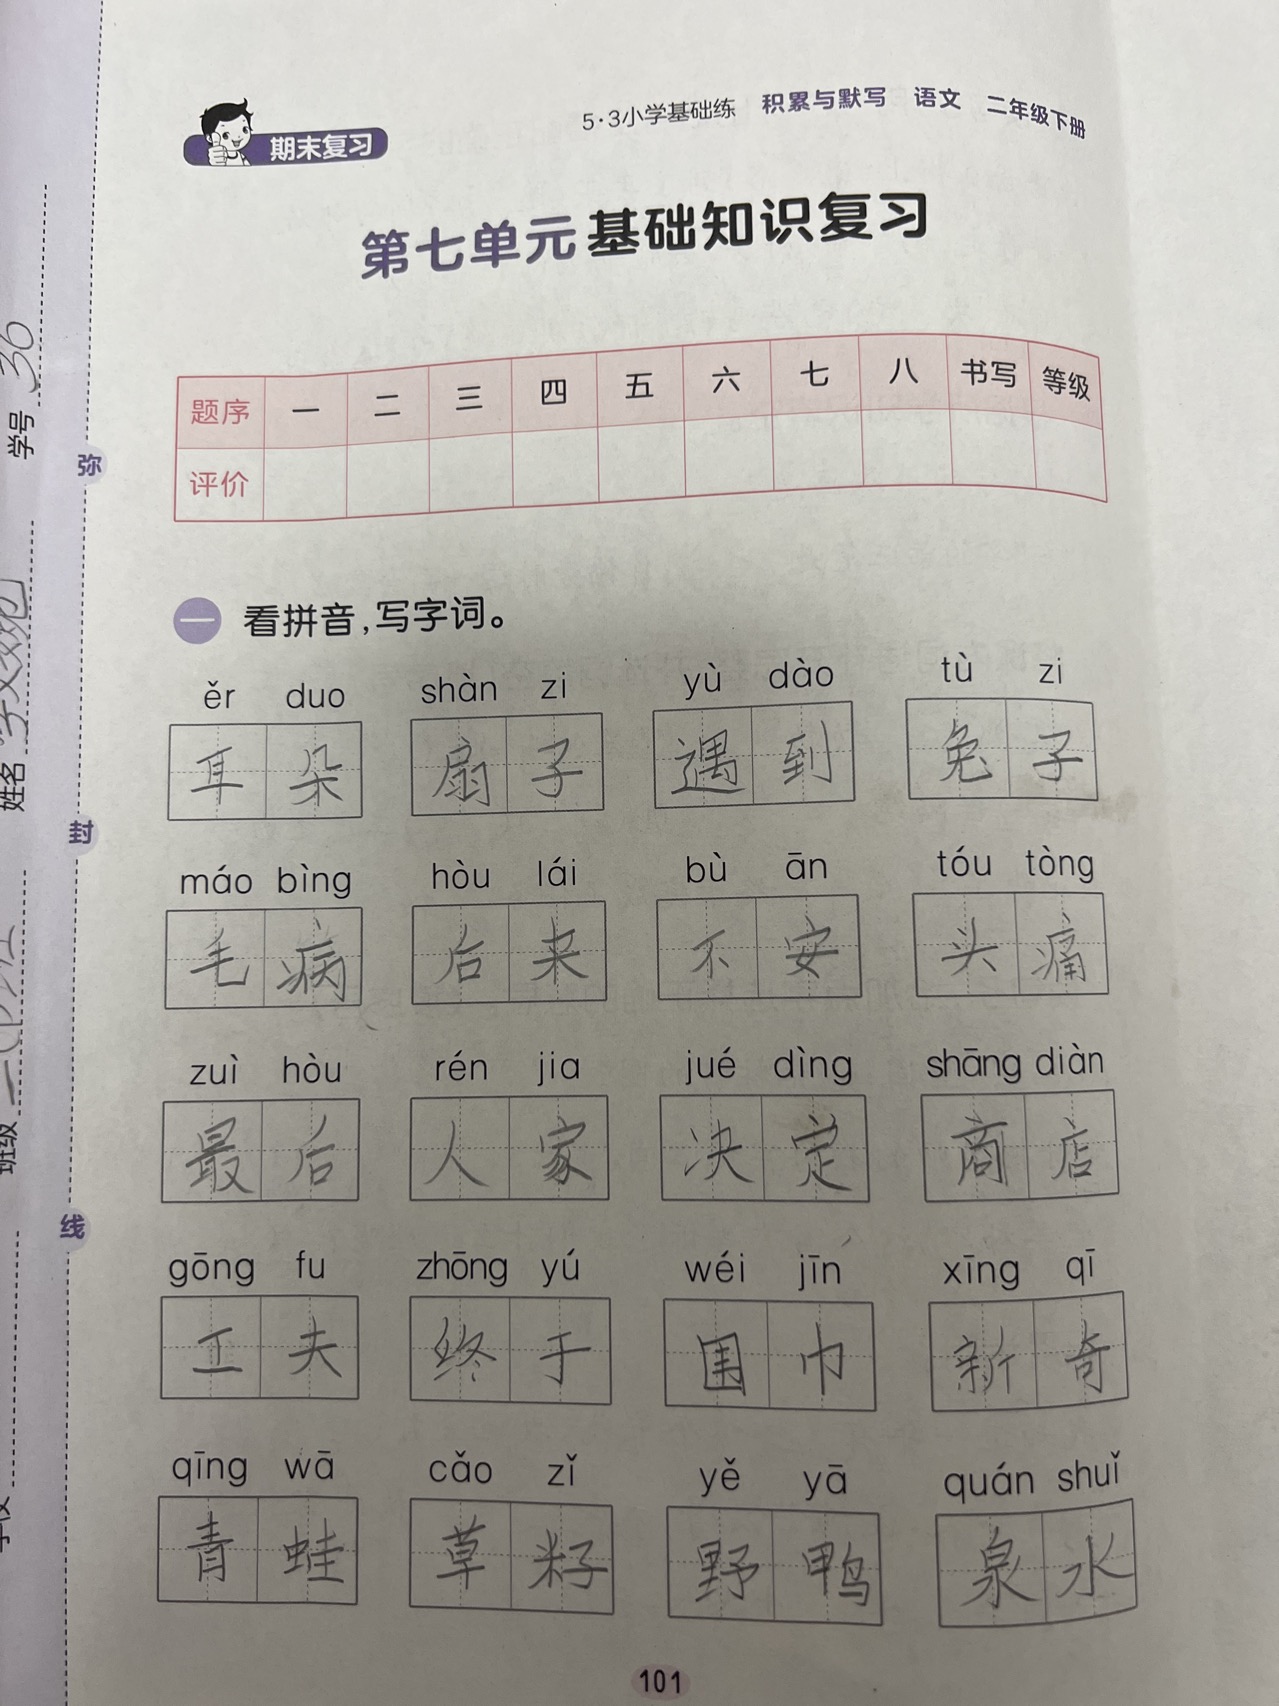 5·3小学基础练 积累与默写 语文 二年级下册
期末复习
第七单元 基础知识复习
题序 一 二 三 四 五 六 七 八 书写 等级
评价
一 看拼音,写字词。
ěr duo shàn zi yù dào tù zi
耳朵 扇子 遇到 兔子
máo bìng hòu lái bù ān tóu tòng
毛病 后来 不安 头痛
zuì hòu rén jia jué dìng shāng diàn
最后 人家 决定 商店
gōng fu zhōng yú wéi jīn xīng qī
工夫 终于 围巾 新奇
qīng wā cǎo zǐ yě yā quán shuǐ
青蛙 草籽 野鸭 泉水
101
学号 36
姓名
班级
弥
封
线